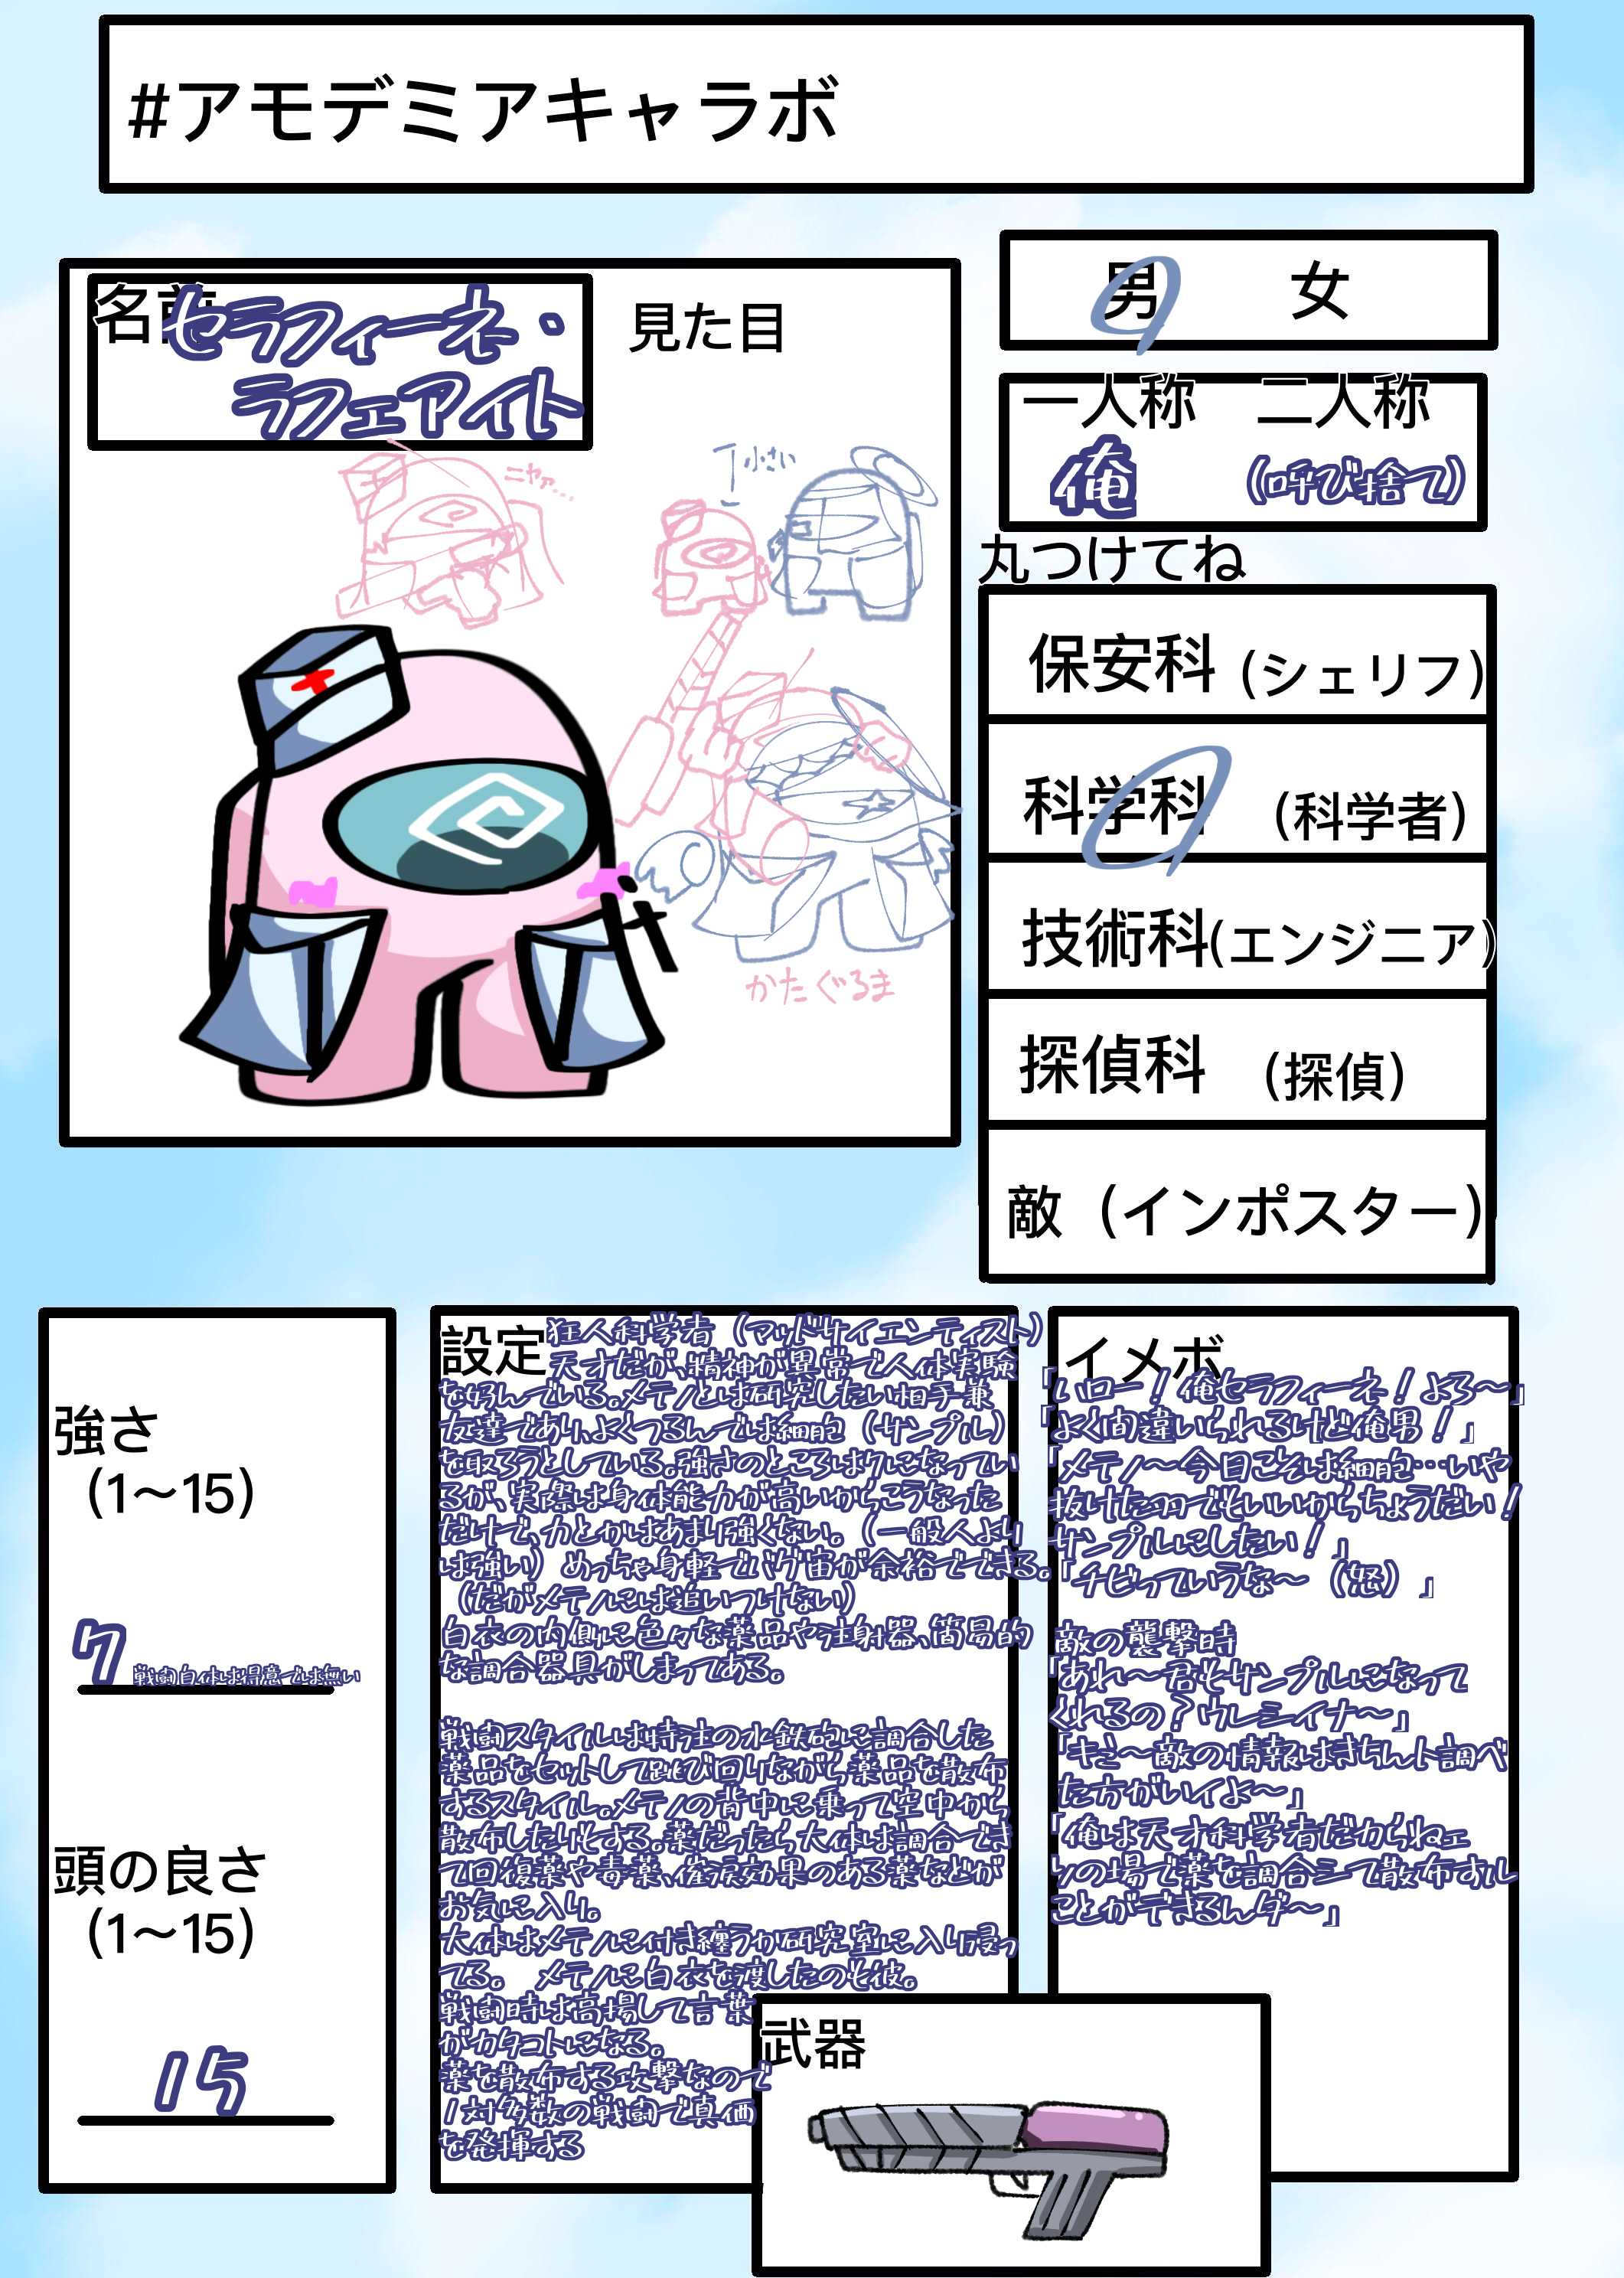 #アモデミアキャラボ
名前
セラフィーネ・
ラフェアイト
見た目
ニヤァ...
小さい
かたぐるま
男 女
一人称 二人称
俺 (呼び捨て)
丸つけてね
保安科 (シェリフ)
科学科 (科学者)
技術科(エンジニア)
探偵科 (探偵)
敵 (インポスター)
強さ
(1～15)
7 戦闘自体は得意では無い
頭の良さ
(1～15)
15
設定
狂人科学者 (マッドサイエンティスト)
天才だが、精神が異常で人体実験
を好んでいる。メテノとは研究したい相手兼
友達であり、よくつるんでは細胞 (サンプル)
を取ろうとしている。強さのところは7になってい
るが、実際は身体能力が高いからこうなった
だけで、力とかはあまり強くない。(一般人より
は強い) めっちゃ身軽でバグ宙が余裕でできる。
(だがメテノには追いつけない)
白衣の内側に色々な薬品や注射器、簡易的
な調合器具がしまってある。
戦闘スタイルは特注の水鉄砲に調合した
薬品をセットして跳び回りながら薬品を散布
するスタイル。メテノの背中に乗って空中から
散布したりもする。薬だったら大体は調合でき
て回復薬や毒薬、催涙効果のある薬などが
お気に入り。
大体はメテノに付き纏うか研究室に入り浸っ
てる。 メテノに白衣を渡したのも彼。
戦闘時は高揚して言葉
がカタコトになる。
薬を散布する攻撃なので
1対多数の戦闘で真価
を発揮する
イメボ
「いロー!俺セラフィーネ!よろ～」
「よく間違いられるけど俺男!」
「メテノ～今日こそは細胞…いや
抜けた羽でもいいからちょうだい!
サンプルにしたい!」
「チビっていうな～ (怒)」
敵の襲撃時
「あれ～君もサンプルになって
くれるの?ウレシイナ～」
「キミ～敵の情報はきちんト調べ
た方がいイよ～」
「俺は天才科学者だからねェ
ソの場で薬を調合シて散布すル
ことができるんダ～」
武器